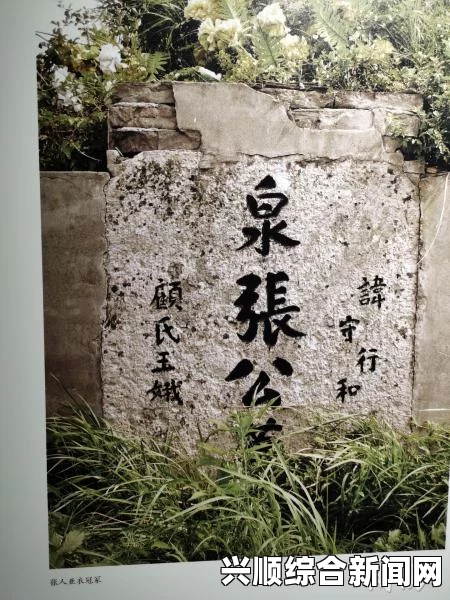 諱守行和
泉張公墓
顧氏玉娥
张人亚衣冠冢
兴顺综合新闻网